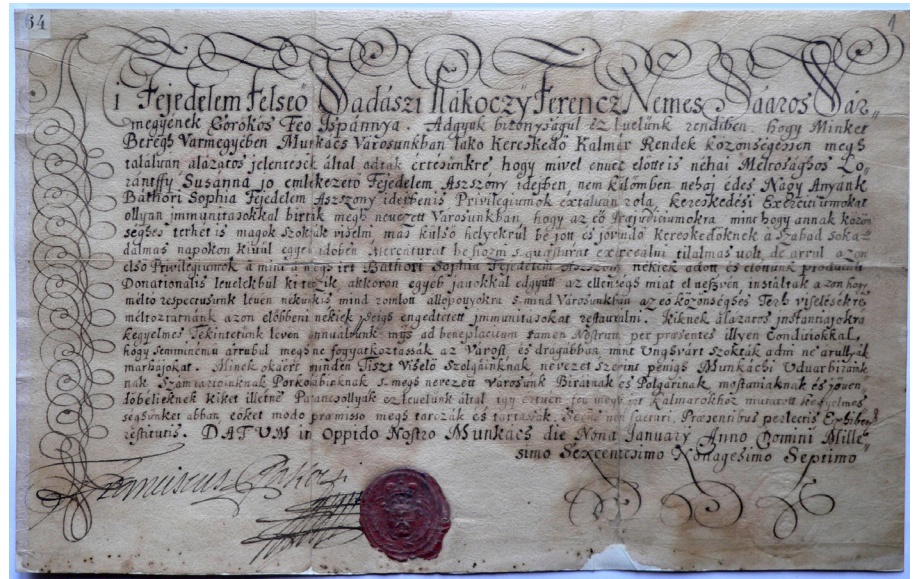 64
1
i Fejedelem Felseő Vadászi Rákoczÿ Ferencz Nemes Sáaros Vár„
megyének Eőrőkős Feo Ispánnya. Adgyuk bizonyságul ez levelűnk rendiben, hogy Minket
Beregh Varmegyében Munkács Városunkban lako Kereskedő Kalmár Rendek kőzőnségessen megh
talalván alázatos jelentesek által adták értésűnkre, hogy mivel ennek előtte is néhai Méltoságbos Lo„
rántffy Susánna jo emlekezetű Fejedelem Aszszony idejeben, nem kűlőmben nehaj édes Nagy Anyánk
Báthori Sophia Fejedelem Aszszony idejebenis Privilegiumok extalván rola, kereskedési Exerciciumokat
ollyan immunitásokkal birtik megh nevezett Városunkban, hogy az eő Praejudiciumokra mint hogy annak kőzőn
séghes terhét is magok szokják viselni más kűlső helyekrűl bé jőtt és jővendő kereskedőknek a szabad soka„
dalmas napokon kivűl egyéb időben Mercenturat bé hozni s. quaesturat exercealni tilalmas volt, de arrul azon
első Privilegiumok a mint a megh irt Báthori Sophia Fejedelem Aszszony nékiek adott és előnkűnk producalt
Donationalis levelekbűl ki tetzik, akkoron egyéb javokkal edgyűtt az ellenségh miat el veszvén, instáltak azon hogy
méltó respectusunk lévén nékűnkis mind romlott állopottyokra s. mind Városunkban az eő kőzőnséghes Terh viselésekre
méltoztatnánk azon előbbeni nékiek pénigh engedtetett immunitásokat restauralni. Kiknek alázatos instantiajokra
kegyelmes Tekintetűnk lévén annualtunk mÿs ad beneplacitum tamen Nostrum per praesentes illyen Conditiokkal,
hogy semminému árrubul megh ne fogyatkoztassák az Várost és drágábban mint Ungvárt szokták adni ne árullyák
marhájokat. Minek okáért minden Tiszt Viselő Szolgáinknak nevezet szerint pénigh Munkáchi Udvarbiránk
nak Számtartoinknak Porkolábioknak s. megh nevezett Városunk Biráinak és Polgárinak, mostaniaknak és jőven„
dőbelieknek kiket illetne Parancsollyuk ez levelűnk által, igy értvén feo megh irt Kalmárokhoz mutatott kegyelmes
séghűnket abban eőket modo praemisso megh tarczák és tartassák. Secus non facturi. Praesentibus perlectis Exhiben„
restitutis. DATUM in Oppido Nostro Munkács die Nona January Anno Domini Mille„
simo Sexcentesimo Nonagesimo Septimo
Franciscus Rakoczi